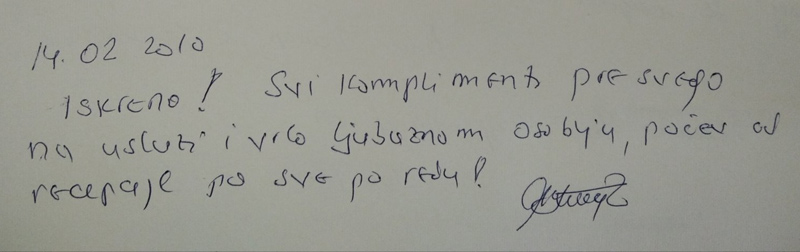 14.02 2010
Iskreno! Svi kompliment pre svego
na usluzi i vrlo ljubaznom osobju, počev od
recepaje po sve po redu!